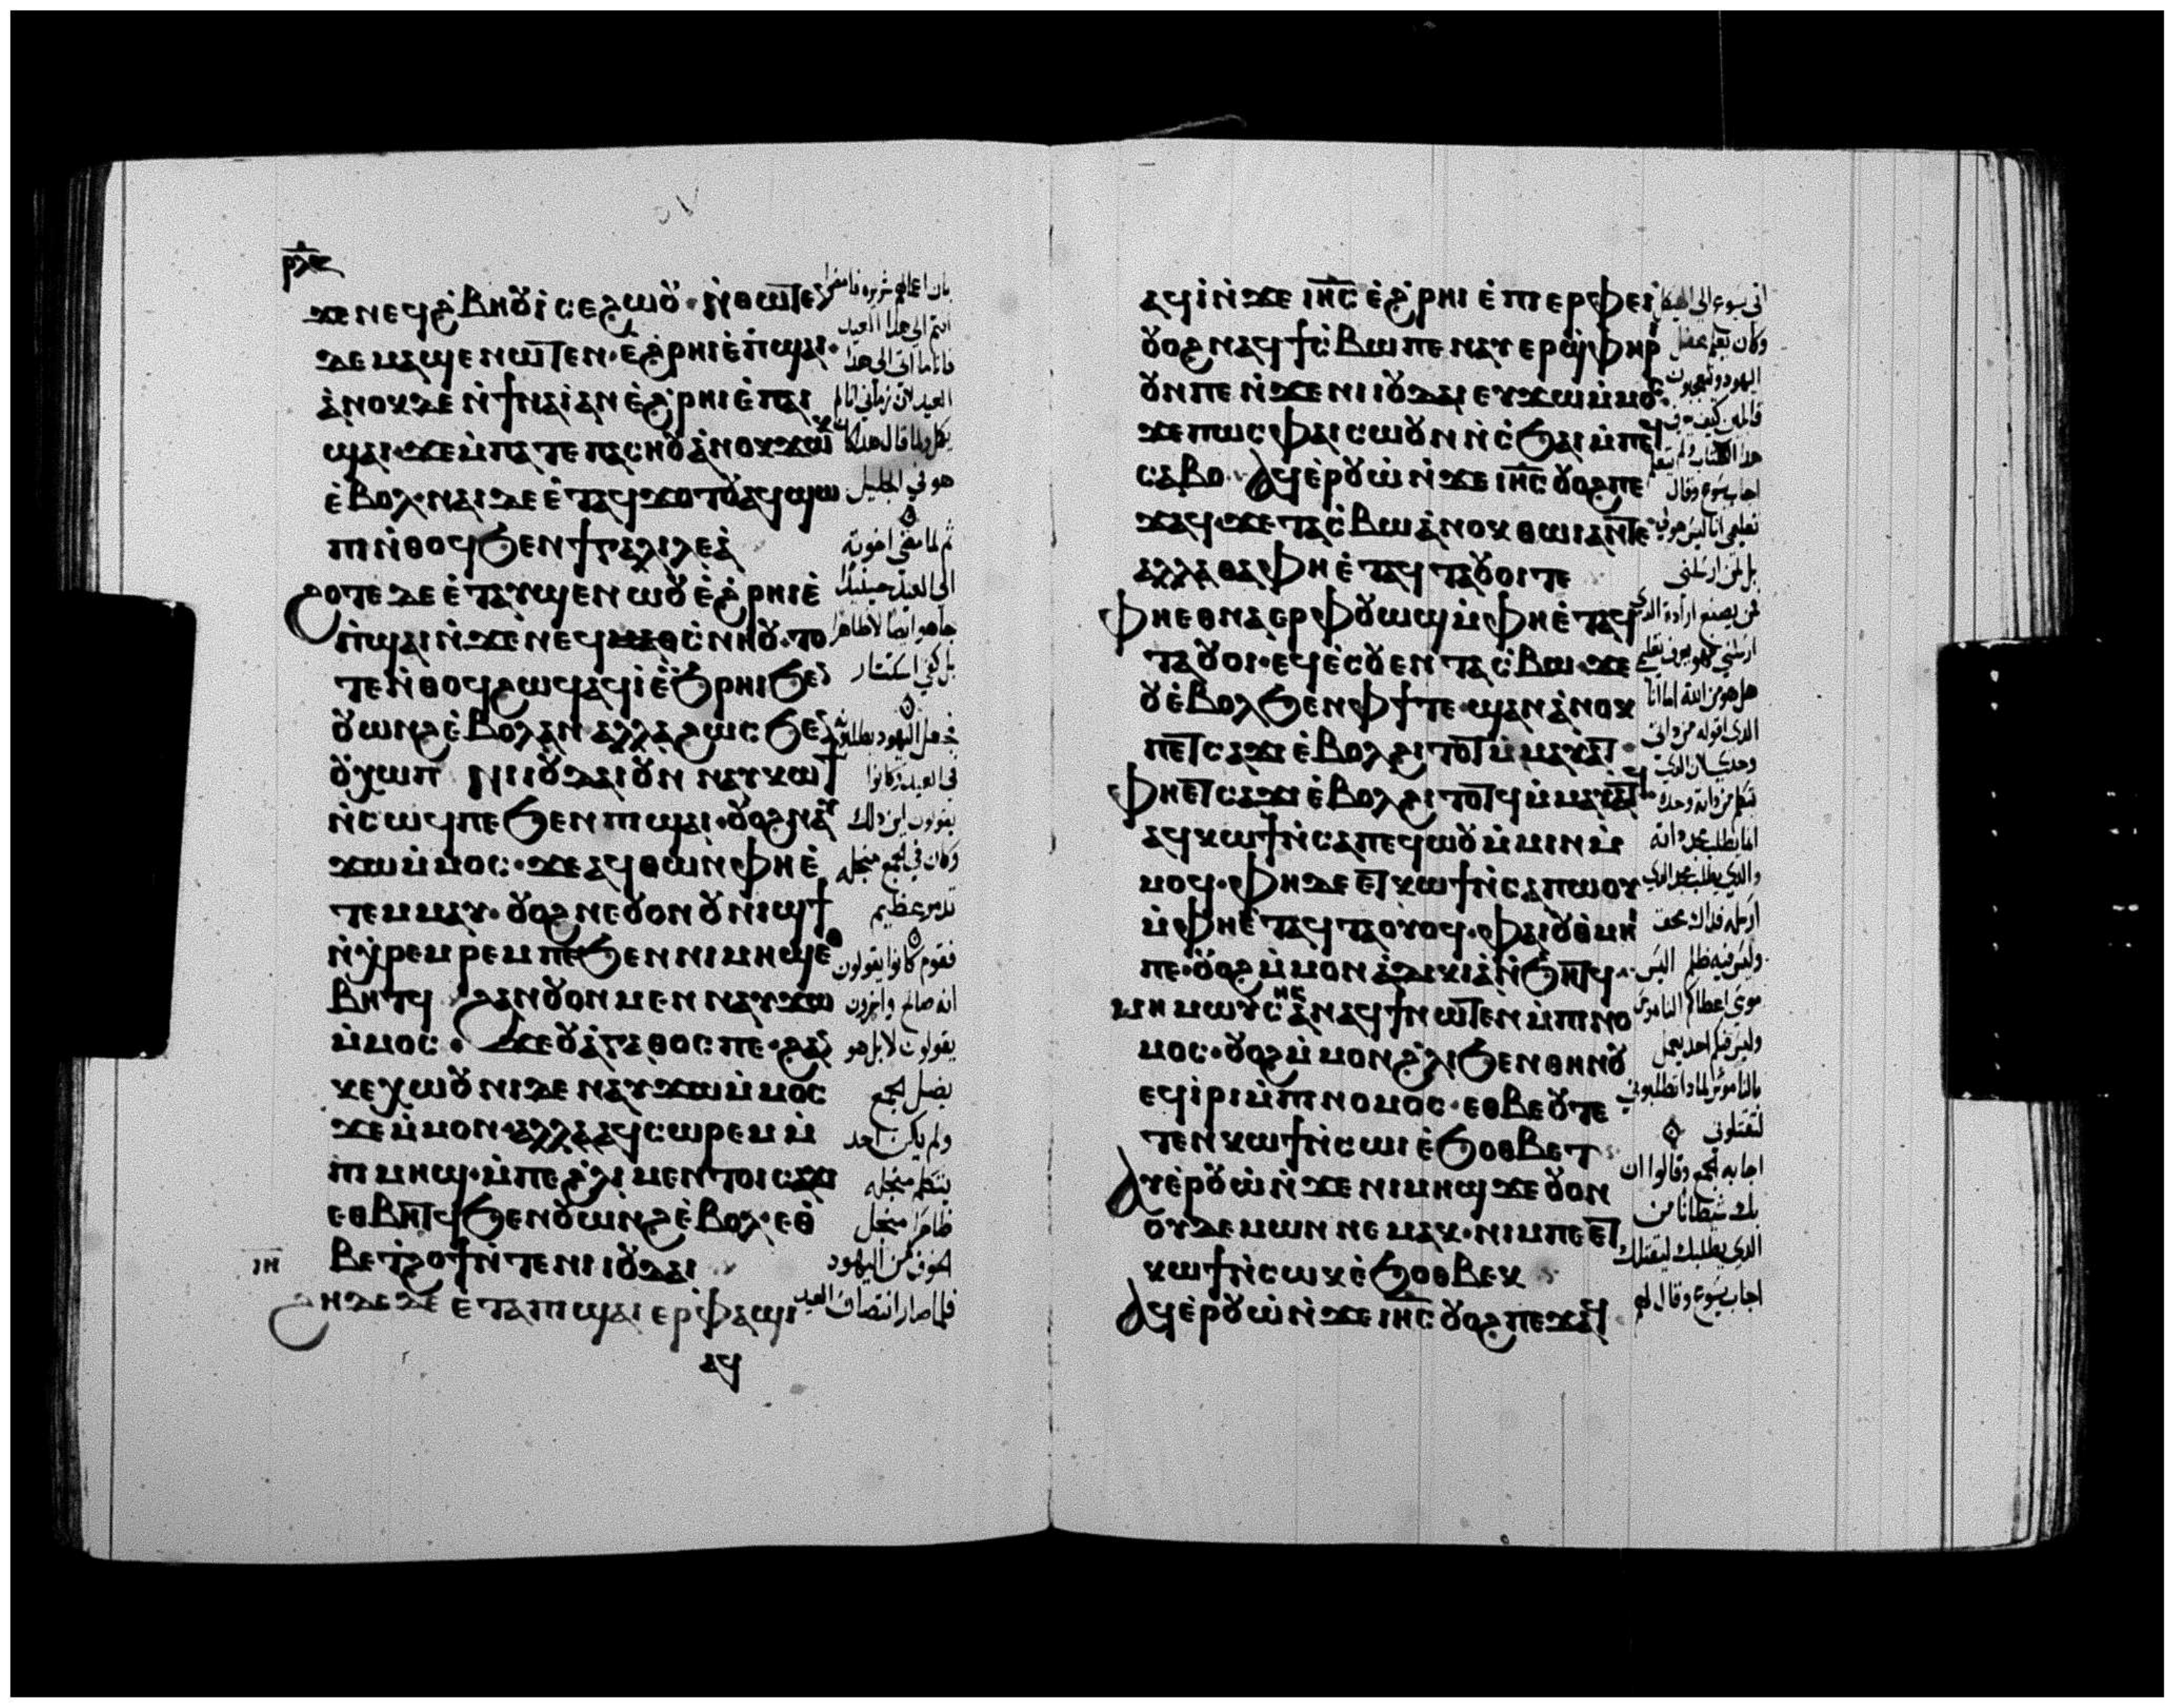 ϫⲉ ⲛⲉϥϩ̀ⲃⲏⲟⲩⲓ ⲥⲉϩⲱⲟⲩ · ⲛ̀ⲑⲱⲧⲉⲛ
ⲇⲉ ⲙⲁϣⲉⲛⲱⲧⲉⲛ · ⲉ̀ϩ̀ⲣⲏⲓ ⲉ̀ⲡ̀ϣⲁⲓ ·
ⲁ̀ⲛⲟⲕ ⲇⲉ ⲛ̀ϯⲛⲁⲓ̀ ⲁⲛ ⲉ̀ϩ̀ⲣⲏⲓ ⲉ̀ⲡⲁⲓ
ϣⲁⲓ · ϫⲉ ⲙ̀ⲡⲁⲧⲉ ⲡⲁⲥⲏⲟⲩ ⲁ̀ⲛⲟⲕ ϫⲱⲕ
ⲉ̀ⲃⲟⲗ · ⲛⲁⲓ ⲇⲉ ⲉ̀ⲧⲁϥϫⲟⲧⲟⲩ ⲁϥϣⲱ
ⲡⲓ ⲛ̀ⲑⲟϥ ϧⲉⲛ ϯⲅⲁⲗⲓⲗⲉⲁ̀
ϩⲟⲧⲉ ⲇⲉ ⲉ̀ⲧⲁⲩϣⲉⲛⲱⲟⲩ ⲉ̀ϩ̀ⲣⲏⲓ ⲉ̀
ⲡ̀ϣⲁⲓ ⲛ̀ϫⲉ ⲛⲉϥⲥ̀ⲛⲏⲟⲩ · ⲧⲟ
ⲧⲉ ⲛ̀ⲑⲟϥ ϩⲱϥ ⲁϥⲓ̀ ⲉ̀ϧ̀ⲣⲏⲓ ϧⲉⲛ
ⲟⲩⲱⲛϩ ⲉ̀ⲃⲟⲗ ⲁⲛ ⲁⲗⲗⲁ ϩⲱⲥ ϧⲉⲛ
ⲟⲩⲭⲱⲡ ⲛⲓⲓⲟⲩⲇⲁⲓ ⲟⲩⲛ ⲛⲁⲩⲕⲱϯ
ⲛ̀ⲥⲱϥ ⲡⲉ ϧⲉⲛ ⲡⲓϣⲁⲓ · ⲟⲩⲟϩ ⲛⲁⲩ
ϫⲱ ⲙ̀ⲙⲟⲥ · ϫⲉ ⲁϥⲑⲱⲛ ⲫⲏⲉ̀
ⲧⲉⲙⲙⲁⲩ · ⲟⲩⲟϩ ⲛⲉ ⲟⲩⲟⲛ ⲟⲩⲛⲓϣϯ
ⲛ̀ⲭ̀ⲣⲉⲙⲣⲉⲙ ⲡⲉ ϧⲉⲛ ⲛⲓⲙⲏϣ ⲉⲑ
ⲃⲏⲧϥ ϩⲁⲛⲟⲩⲟⲛ ⲙⲉⲛ ⲛⲁⲩϫⲱ
ⲙ̀ⲙⲟⲥ · ϫⲉ ⲟⲩⲁ̀ⲅⲁⲑⲟⲥ ⲡⲉ · ϩⲁⲛ
ⲕⲉⲭⲱⲟⲩⲛⲓ ⲇⲉ ⲛⲁⲩϫⲱ ⲙ̀ⲙⲟⲥ
ϫⲉ ⲙ̀ⲙⲟⲛ · ⲁⲗⲗⲁ ⲁϥⲥⲱⲣⲉⲙ ⲙ̀
ⲡⲓⲙⲏϣ · ⲙ̀ⲡⲉ ϩ̀ⲗⲓ ⲙⲉⲛⲧⲟⲓ ⲥⲁϫⲓ
ⲉⲑⲃⲏⲧϥ ϧⲉⲛ ⲟⲩⲱⲛϩ ⲉ̀ⲃⲟⲗ · ⲉⲑ
ⲃⲉ ⲧ̀ϩⲟϯ ⲛ̀ⲧⲉ ⲛⲓⲓⲟⲩⲇⲁⲓ
ⲓⲏ
ϩⲏⲇⲉ ⲇⲉ ⲉ̀ⲧⲁ ⲡⲓϣⲁⲓ ⲉⲣ ⲫⲁϣⲓ
ⲁϥ
بان اعمالهم شريره فامضوا
انتم الى هذا العيد
فانا ما اتى الى هذا
العيد لان زمانى انا لم
يكمل ولما قال هذا كان
هو في الجليل
ثم لما مضى اخوته
الى العيد حينئذ
جا هو ايضا لا ظاهرا
بل كفى استتار
فجعل اليهود يطلبونه
فى العيد وكانوا
يقولون اين ذلك
وكان في الجمع منجله
تذمر عظيم
فقوم كانوا يقولون
انه صالح واخرون
يقولون لا بل هو
يضل الجمع
ولم يكن احد
يتكلم منجله
ظاهرا منجل
الخوف من اليهود
فلما صار انتصاف العيد
ⲁϥⲓ̀ ⲛ̀ϫⲉ ⲓⲏⲥ ⲉ̀ϩ̀ⲣⲏⲓ ⲉ̀ⲡⲓⲉⲣⲫⲉⲓ
ⲟⲩⲟϩ ⲛⲁϥϯⲥ̀ⲃⲱ ⲡⲉ ⲛⲁⲩⲉⲣϣ̀ⲫⲏⲣⲓ
ⲟⲩⲛ ⲡⲉ ⲛ̀ϫⲉ ⲛⲓⲓⲟⲩⲇⲁⲓ ⲉⲩϫⲱ ⲙ̀ⲙⲟⲥ
ϫⲉ ⲡⲱⲥ ⲫⲁⲓ ⲥⲱⲟⲩⲛ ⲛ̀ⲥ̀ϧⲁⲓ ⲙ̀ⲡⲉϥ
ⲥⲁⲃⲟ · ⲁϥⲉ̀ⲣⲟⲩⲱ̀ ⲛ̀ϫⲉ ⲓⲏⲥ ⲟⲩⲟϩ ⲡⲉ
ϫⲁϥ · ϫⲉ ⲧⲁⲥ̀ⲃⲱ ⲁ̀ⲛⲟⲕ ⲑⲱⲓ ⲁⲛ ⲧⲉ
ⲁⲗⲗⲁ ⲑⲁ ⲫⲏⲉ̀ⲧⲁϥⲧⲁⲟⲩⲟⲓ ⲧⲉ
ⲫⲏⲉⲑⲛⲁⲉⲣ ⲫⲟⲩⲱϣ ⲙ̀ⲫⲏⲉ̀ⲧⲁϥ
ⲧⲁⲟⲩⲟⲓ · ⲉϥⲉ̀ⲥⲟⲩⲉⲛ ⲧⲁⲥ̀ⲃⲱ · ϫⲉ
ⲟⲩⲉ̀ⲃⲟⲗ ϧⲉⲛ ⲫϯ ⲧⲉ · ϣⲁⲛ ⲁ̀ⲛⲟⲕ
ⲡⲉⲧⲥⲁϫⲓ ⲉ̀ⲃⲟⲗ ϩⲓⲧⲟⲧ ⲙ̀ⲙⲁⲩⲁⲧ ·
ⲫⲏⲉⲧⲥⲁϫⲓ ⲉ̀ⲃⲟⲗ ϩⲓⲧⲟⲧϥ ⲙ̀ⲙⲁⲩⲁⲧϥ
ⲁϥⲕⲱϯ ⲛ̀ⲥⲁ ⲡⲉϥⲱⲟⲩ ⲙ̀ⲙⲓⲛ ⲙ̀
ⲙⲟϥ · ⲫⲏ ⲇⲉ ⲉⲧⲕⲱϯ ⲛ̀ⲥⲁ ⲡⲱⲟⲩ
ⲙ̀ⲫⲏⲉ̀ⲧⲁϥⲧⲁⲟⲩⲟϥ · ⲫⲁⲓ ⲟⲩⲑⲙⲏⲓ
ⲡⲉ · ⲟⲩⲟϩ ⲙ̀ⲙⲟⲛ ⲁ̀ⲇⲓⲕⲓⲁ̀ ⲛ̀ϧⲏⲧϥ ·
ⲙⲏ ⲙⲱⲩⲥⲏⲥ ⲁⲛ ⲁϥϯ ⲛⲱⲧⲉⲛ ⲙ̀ⲡⲓⲛⲟ
ⲙⲟⲥ · ⲟⲩⲟϩ ⲙ̀ⲙⲟⲛ ϩ̀ⲗⲓ ϧⲉⲛ ⲑⲏⲛⲟⲩ
ⲉϥⲓ̀ⲣⲓ ⲙ̀ⲡⲓⲛⲟⲙⲟⲥ · ⲉⲑⲃⲉ ⲟⲩ ⲧⲉ
ⲧⲉⲛⲕⲱϯ ⲛ̀ⲥⲱⲓ ⲉ̀ϧⲟⲑⲃⲉⲧ
ⲁϥⲉ̀ⲣⲟⲩⲱ̀ ⲛ̀ϫⲉ ⲛⲓⲙⲏϣ ϫⲉ ⲟⲩⲟⲛ
ⲟⲩⲇⲉⲙⲱⲛ ⲛⲉⲙⲁⲕ · ⲛⲓⲙ ⲡⲉⲉⲧ
ⲕⲱϯ ⲛ̀ⲥⲱⲕ ⲉ̀ϧⲟⲑⲃⲉⲕ
ⲁϥⲉ̀ⲣⲟⲩⲱ̀ ⲛ̀ϫⲉ ⲓⲏⲥ ⲟⲩⲟϩ ⲡⲉϫⲁϥ
اتى يسوع الى الهيكل
وكان يعلم فظل
اليهود وتعجبون
قائلين كيف يعرف
هذا الكتاب ولم يتعلم
اجاب يسوع وقال
تعليمى انا ليس هو لى
بل لمن ارسلنى
من يصنع ارادة الذى
ارسلنى فهو يعرف تعليمى
هل هو من الله اما انا
الذى اقوله من ذاتى
وحدى لان الذى
يتكلم من ذاته وحده
انما يطلب مجد ذاته
والذى يطلب مجد الذى
ارسله فذاك محق
وليس فيه ظلم اليس
موسى اعطاكم الناموس
وليس فيكم احد يعمل
بالناموس لماذا تطلبونى
لتقتلونى
اجابه الجمع وقالوا ان
بك شيطانا من
الذى يطلبك ليقتلك
اجاب يسوع وقال لهم